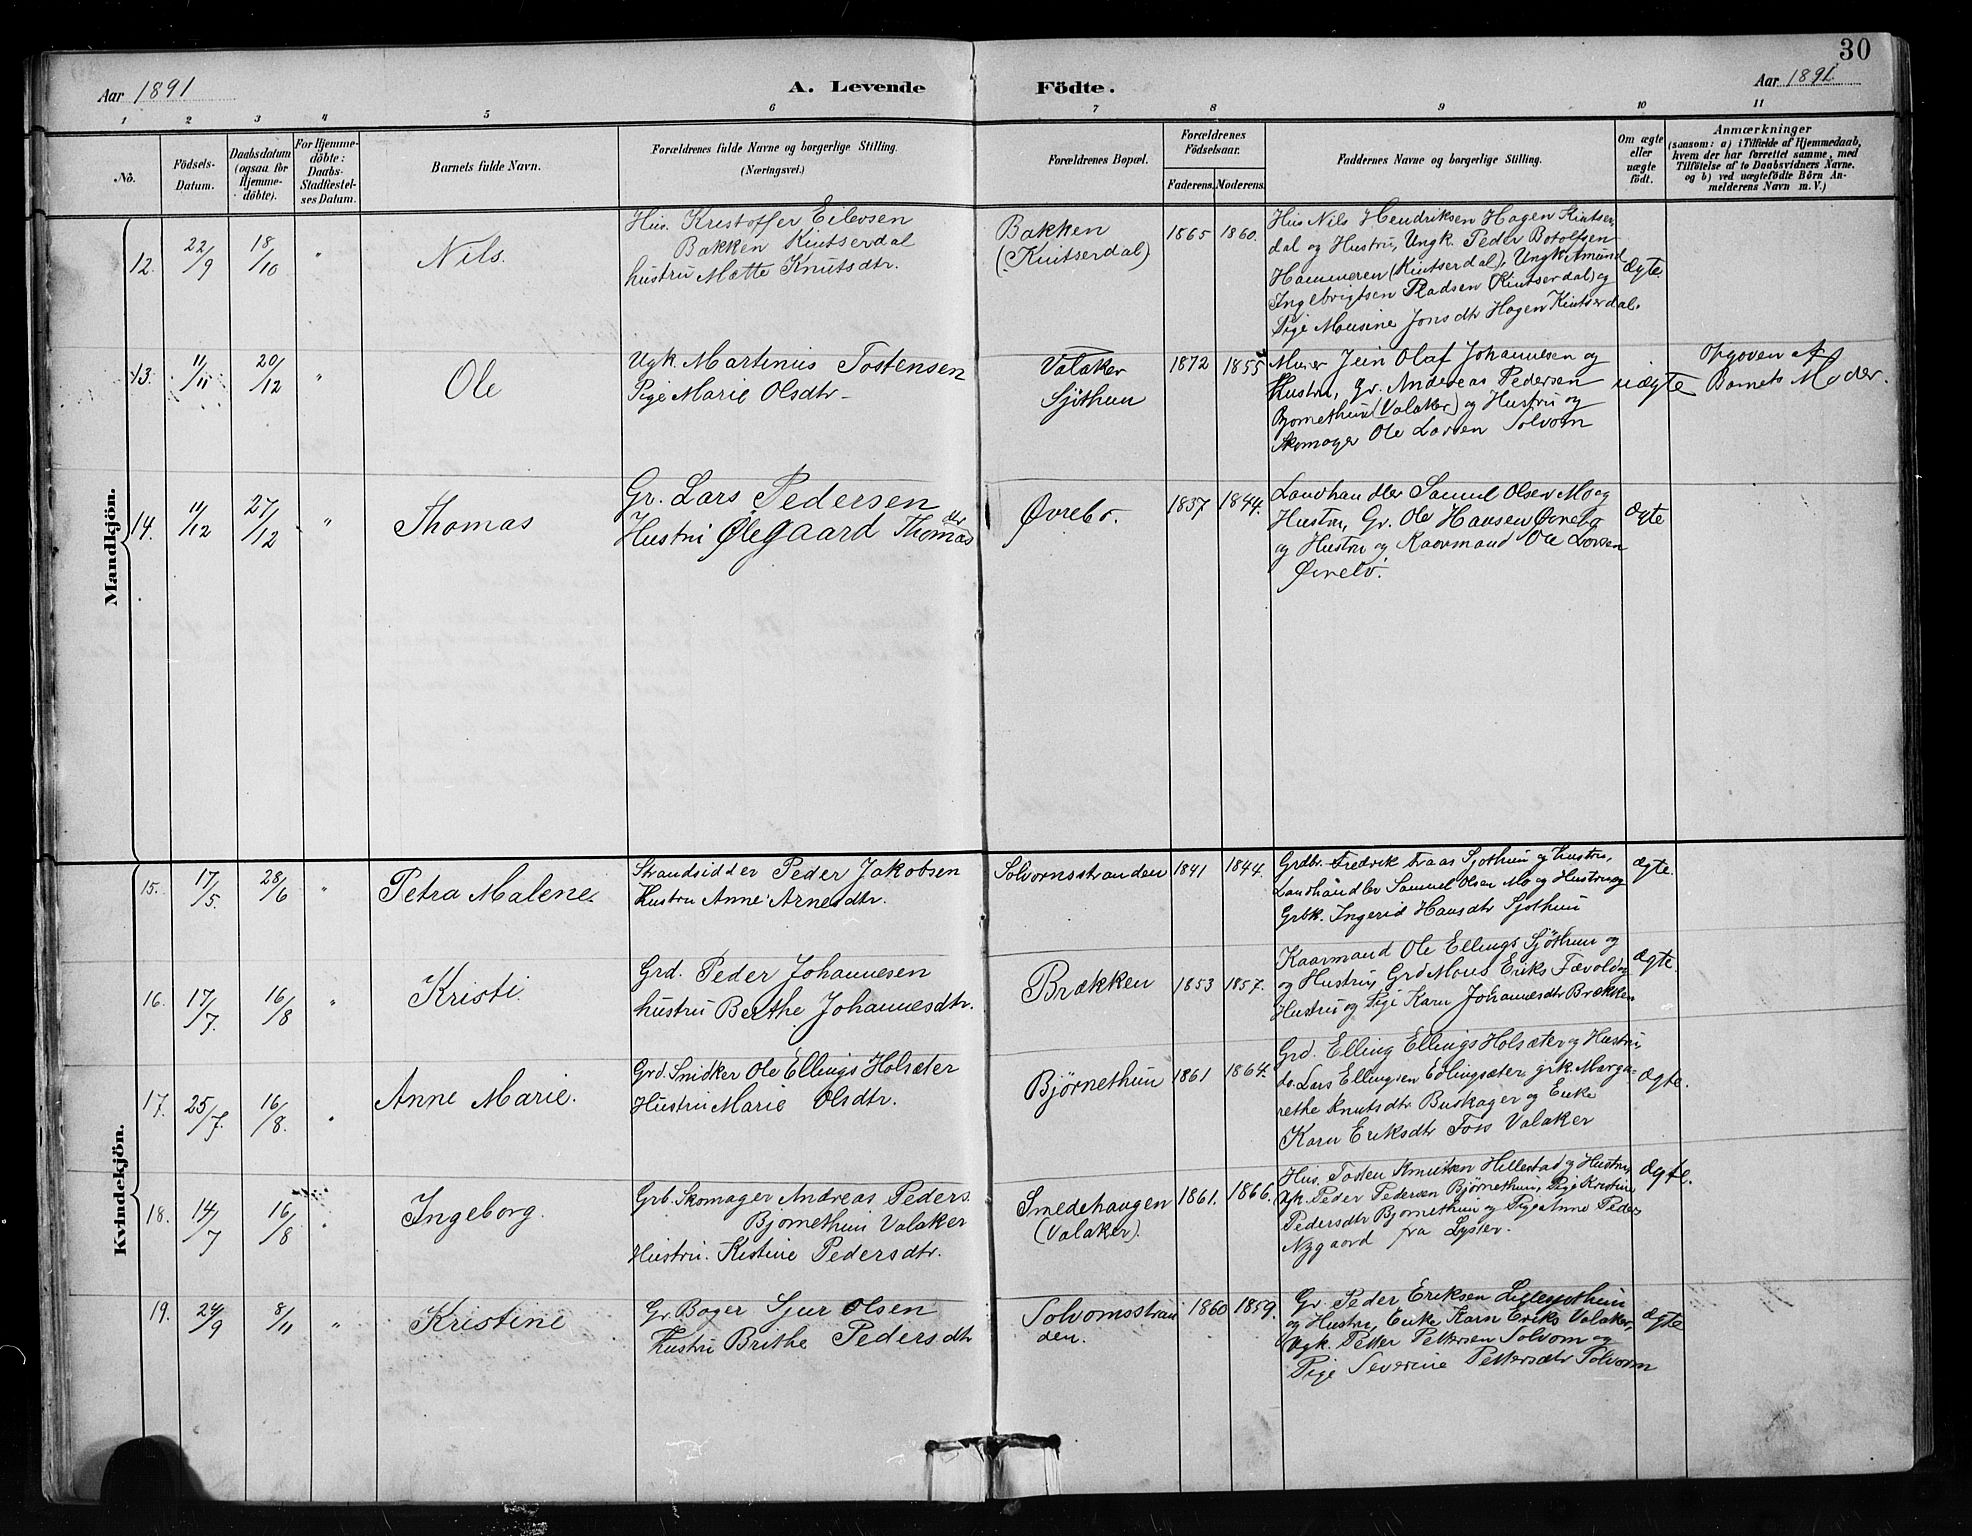 30
Aar 1891
A. Levende
Födte.
Aar 1891.
1 2 3 4 5 6 7 8 9 10 11
No.
Födsels-
Datum.
Daabsdatum
(ogsaa for
Hjemme-
döbte).
For Hjemme-
döbte:
Daabs-
Stadfæstel-
ses Datum.
Barnets fulde Navn.
Forældrenes fulde Navne og borgerlige Stilling.
(Næringsvei.)
Forældrenes Bopæl.
Forældrenes
Födselsaar.
Faderens. Moderens.
Faddernes Navne og borgerlige Stilling.
Om ægte
eller
uægte
födt.
Anmærkninger
(saasom: a) i Tilfælde af Hjemmedaab,
hvem der har forrettet samme, med
Tilföielse af to Daabsvidners Navne.
og b) ved uægtefödte Börn An-
melderens Navn m. V.)
Mandkjön.
12. 22/9 18/10 " Nils.
Hus. Kristoffer Eilevsen
Bakken Kintserdal
hustru Mætte Knutsdtr.
Bakken
(Kintserdal)
1865 1860.
Hus Nils Hendriksen Hagen Kintser
dal og Hustru, Ungk. Peder Botolfsen
Hammeren (Kintserdal), Ungk. Amund
Ingebrigtsen Pladsen Kintserdal) og
Pige Monsine Jonsdtr Hagen Kintserdal.
Ægte.
13. 11/11 20/12 " Ole
Ugk. Martinius Tostensen
Pige Marie Olsdtr
Valaker
Sjöthun
1872 1855
Murer Olaf Johannesen og
Hustru, Gr. Andreas Pedersen
Bjornethun (Valaker) og Hustru og
Skomager Ole Larsen Solvorn
uægte
Opgoven af
Barnets Moder.
14. 11/12 27/12 " Thomas
Gr. Lars Pedersen
Hustru Ølegaard Thomas dtr
Øvrebo.
1837 1844.
Landhandler Samuel Olsen Mo og
Hustru, Gr. Ole Hansen Øvrebo
og Hustru og Kaarmand Ole Larsen
Øvrebo.
Ægte
Kvindekjön.
15. 17/5. 28/6 " Petra Malene.
Strandsidder Peder Jakobsen
Hustru Anne Arnesdtr.
Solvornsstranden
1841 1844.
Grdbr. Fredrik Traas Sjothun og Hustru,
Landhandler Samuel Olsen Mo og Hustru og
Grbk. Ingerid Hansdtr Sjothun
Ægte.
16. 17/7. 16/8 " Kristi.
Grd. Peder Johannesen
hustru Berthe Johannesdtr.
Brækken
1853 1857.
Kaarmand Ole Ellings Sjöthun og
og Hustru, Grd Mons Eriks Fævold og
Hustru og Pige Karn Johannesdtr Brækken
Ægte.
17. 25/7. 16/8. " Anne Marie.
Grd. Snidker Ole Ellings Holsæter
Hustru Marie Olsdtr.
Bjørnethun
1861 1864.
Grd. Elling Ellings Holsæter og Hustru
do. Lars Ellingsen Edlingsæter, grk. Marga-
rethe Knutsdtr Buskager og Enke
Karn Eriksdtr Foss Valaker
Ægte.
18. 14/7 16/8 " Ingeborg.
Grb. Skomager Andreas Peders.
Bjornethun Valaker
Hustru. Kistine Pedersdtr.
Smedehaugen
(Valaker).
1861. 1866.
Hus. Tosten Knutsen Hillestad og Hustru,
Ugk. Peder Pedersen Bjørnethun, Pige Kristine
Pedersdtr Bjornethun og Pige Anne Peders
Nygaard fra Lyster.
Ægte.
19. 24/9 8/11 " Kristine
Gr. Bager Sjur Olsen
Hustru Brithe Pedersdtr
Solvornsstran
den.
1860 1859.
Gr. Peder Eriksen Lillesjothun
og Hustru, Enke Karn Eriks Valaker,
Ugk. Petter Pettersen Solvorn og
Pige Severine Pettersdtr Solvorn
Ægte